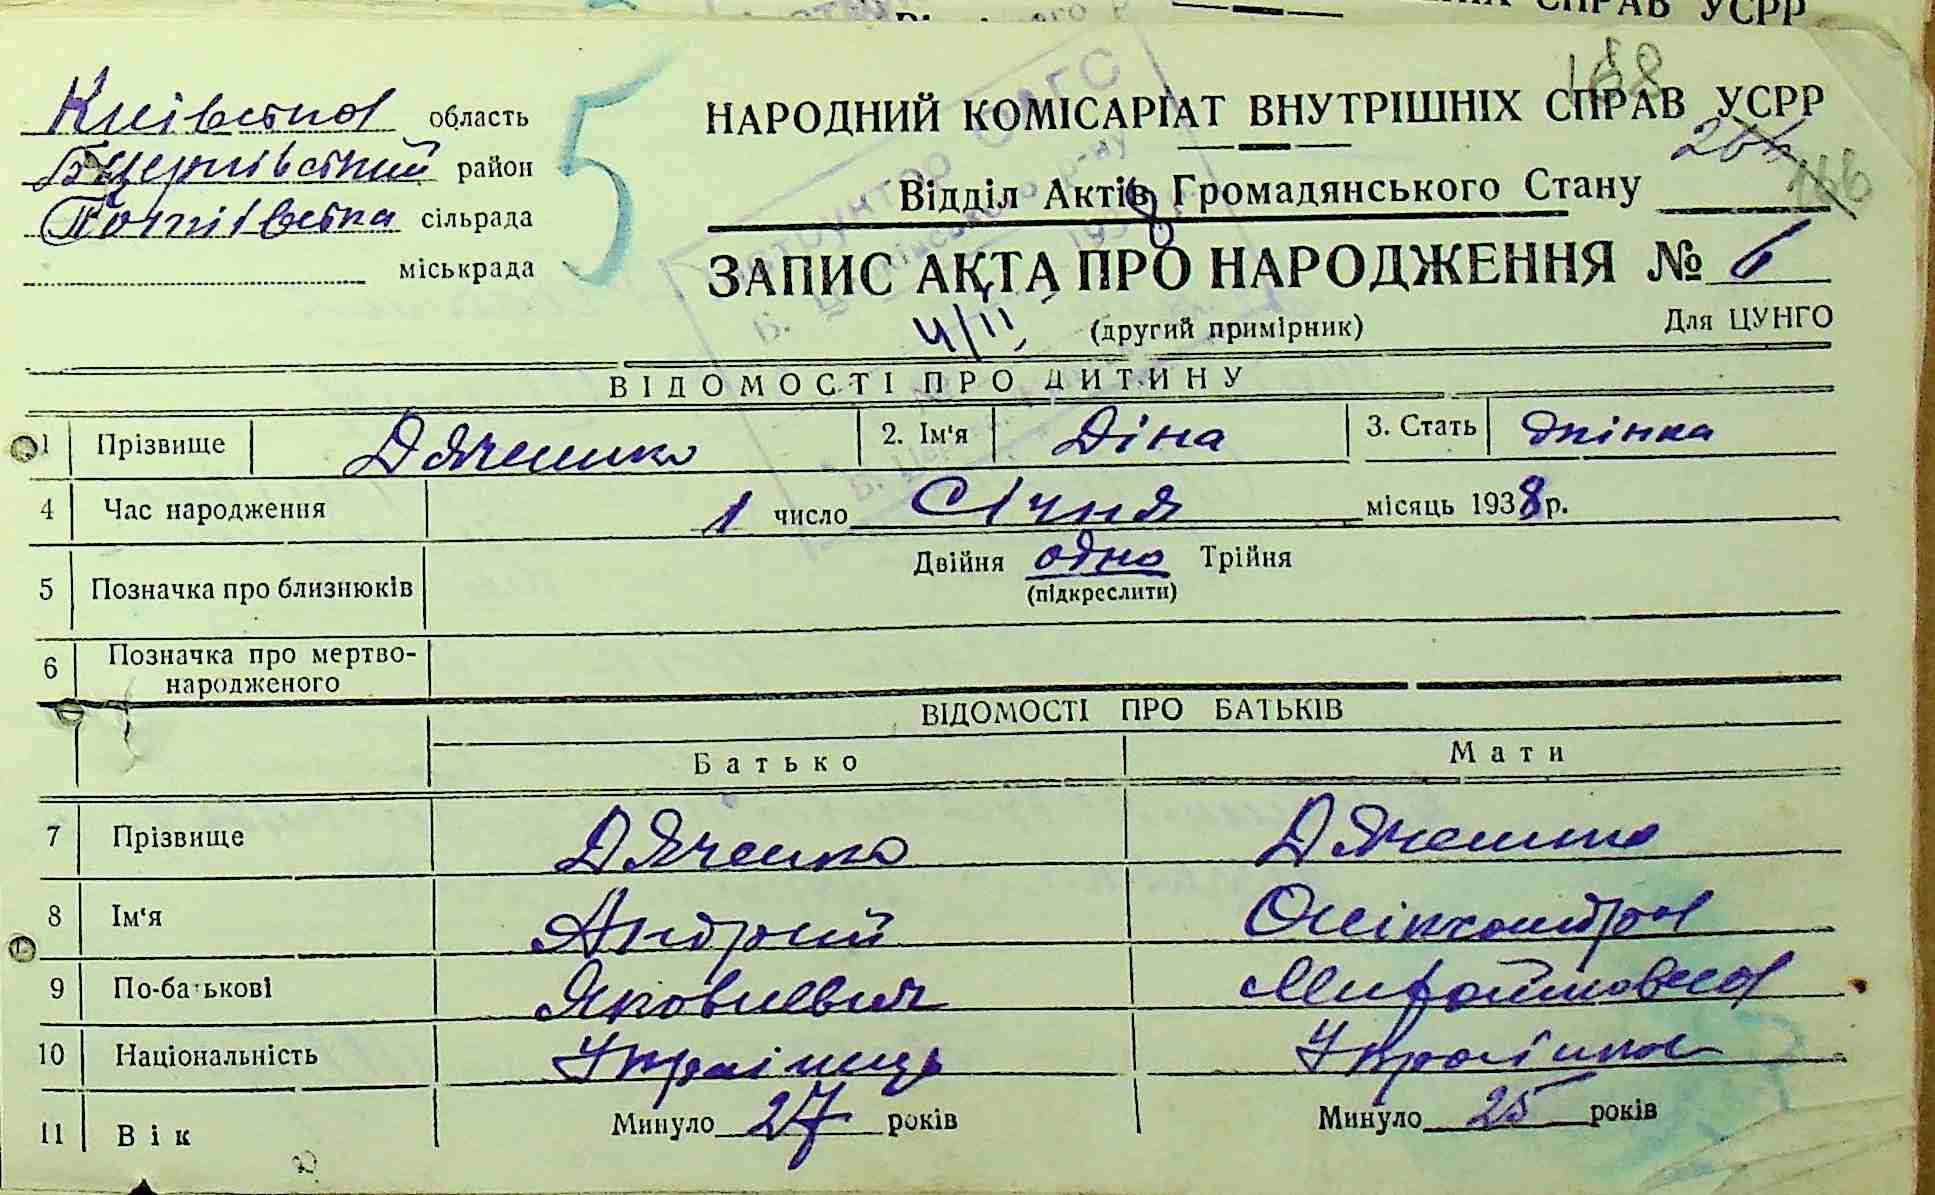 СПРАВ УСРР
Київська область
Бцерківський район
Фотівська сільрада
міськрада
5
168
НАРОДНИЙ КОМІСАРІАТ ВНУТРІШНІХ СПРАВ УСРР
266
166
Відділ Актів Громадянського Стану
ЗАПИС АКТА ПРО НАРОДЖЕННЯ № 6
4/II
(другий примірник)
Для ЦУНГО
ВІДОМОСТІ ПРО ДИТИНУ
1 Прізвище Дяченко 2. Ім'я Діна 3. Стать жінка
4 Час народження 1 число Січня місяць 1938 р.
5 Позначка про близнюків Двійня одно Трійня
(підкреслити)
6 Позначка про мертво-
народженого
ВІДОМОСТІ ПРО БАТЬКІВ
Батько Мати
7 Прізвище Дяченко Дяченко
8 Ім'я Андрий Олікхандра
9 По-батькові Яковлевич Митфамовна
10 Національність Українець Українка
11 Вік Минуло 27 років Минуло 25 років